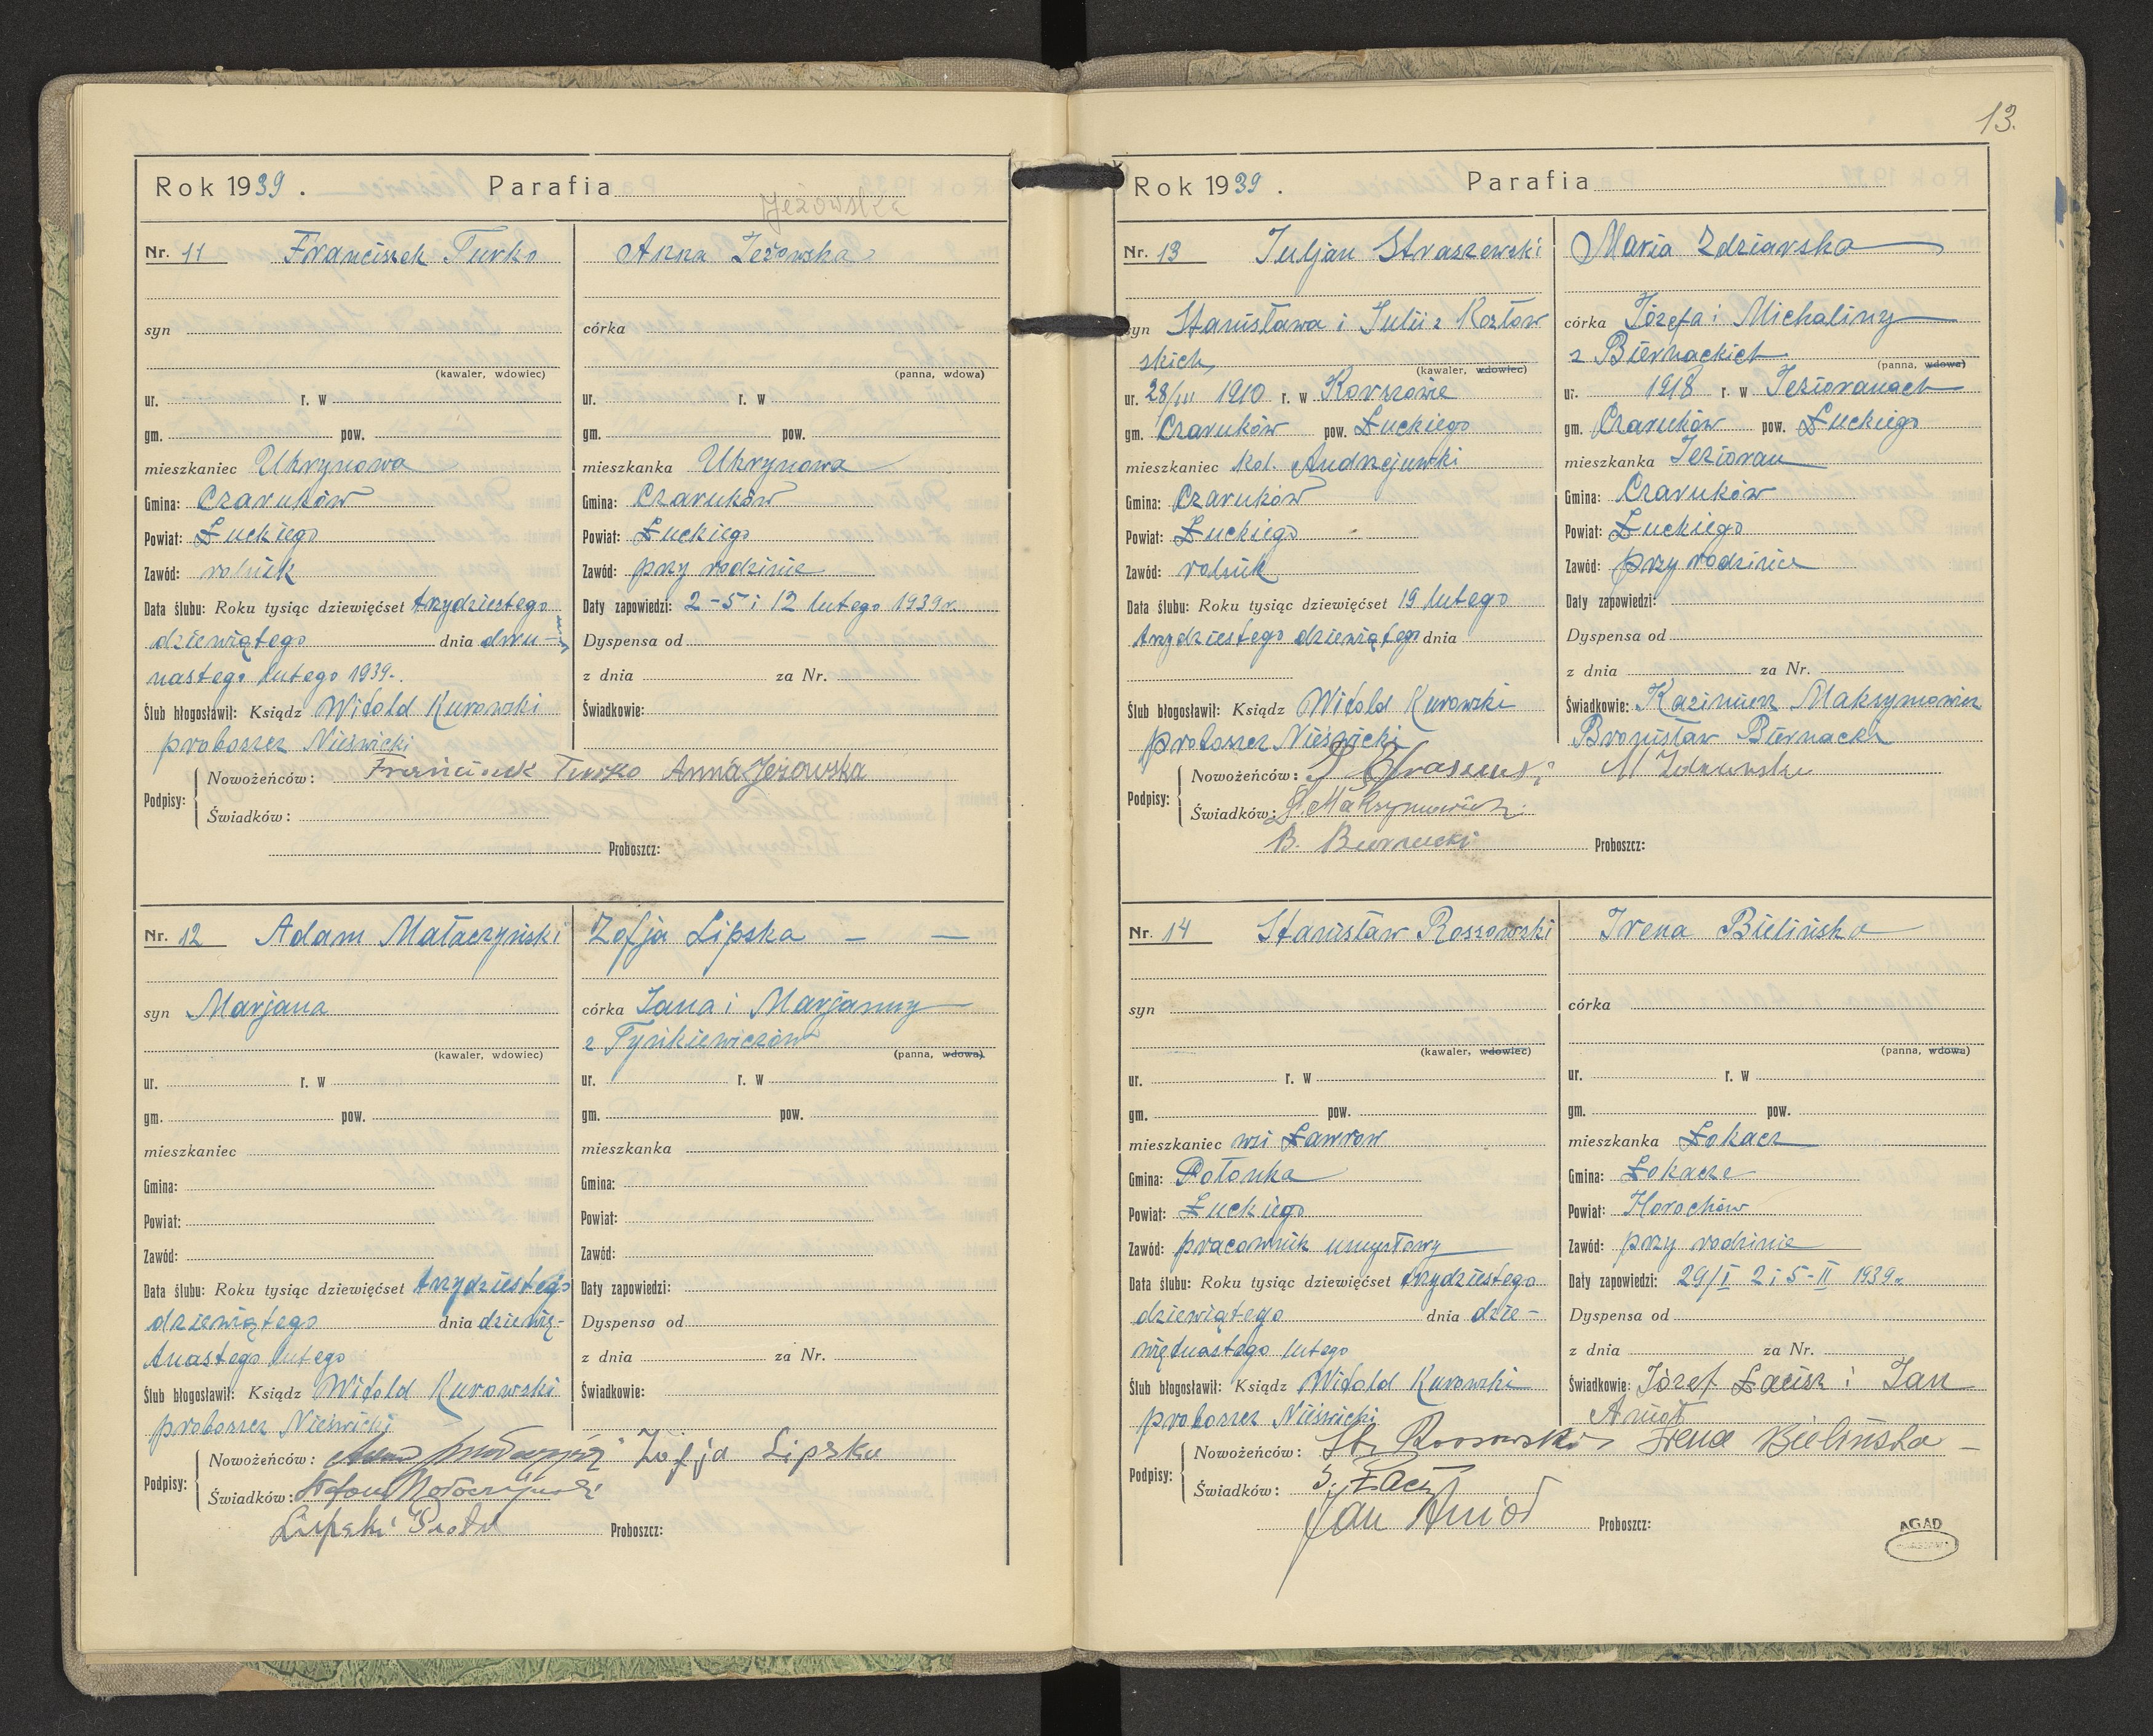 13.
Rok 1939. Parafia
Jeżowska
Nr. 11 Franciszek Turko
syn
(kawaler, wdowiec)
ur. r. w
gm. pow.
mieszkaniec Uhrynowa
Gmina: Czaruków
Powiat: Łuckiego
Zawód: rolnik
Data ślubu: Roku tysiąc dziewięćset trzydziestego
dziewiątego dnia dwu-
nastego lutego 1939.
Ślub błogosławił: Ksiądz Witold Kurowski
proboszcz Nieświcki
Anna Jeżowska
córka
(panna, wdowa)
ur. r. w
gm. pow.
mieszkanka Uhrynowa
Gmina: Czaruków
Powiat: Łuckiego
Zawód: przy rodzinie
Daty zapowiedzi: 2-5 i 12 lutego 1939 r.
Dyspensa od
z dnia za Nr.
Świadkowie:
Podpisy:
Nowożeńców: Franciszek Turko Anna Jeżowska
Świadków:
Proboszcz:
Nr. 12 Adam Małaczyński
syn Marjana
(kawaler, wdowiec)
ur. r. w
gm. pow.
mieszkaniec
Gmina:
Powiat:
Zawód:
Data ślubu: Roku tysiąc dziewięćset trzydziestego
dziewiątego dnia dziewię-
tnastego lutego
Ślub błogosławił: Ksiądz Witold Kurowski
proboszcz Nieświcki
Zofja Lipska — —
córka Jana i Marjanny
z Tyńkiewiczów
(panna, wdowa)
ur. r. w
gm. pow.
mieszkanka
Gmina:
Powiat:
Zawód:
Daty zapowiedzi:
Dyspenso od
z dnia za Nr.
Świadkowie:
Podpisy:
Nowożeńców: Zofja Lipska
Świadków:
Lipski
Proboszcz:
Rok 1939. Parafia
Nr. 13 Juljan Straszewski
syn Stanisława i Julii z Kozłow
skich
(kawaler, wdowiec)
ur. 28/III 1910 r. w Korszowie
gm. Czaruków pow. Łuckiego
mieszkaniec kol. Andrzejuwki
Gmina: Czaruków
Powiat: Łuckiego
Zawód: rolnik
Data ślubu: Roku tysiąc dziewięćset 19 lutego
trzydziestego dziewiątego dnia
Ślub błogosławił: Ksiądz Witold Kurowski
proboszcz Nieświcki
Maria Zdziarska
córka Józefa i Michaliny
z Biernackich
(panna, wdowa)
ur. 1918 r. w Jezioranach
gm. Czaruków pow. Łuckiego
mieszkanka Jezioran
Gmina: Czaruków
Powiat: Łuckiego
Zawód: przy rodzinie
Daty zapowiedzi:
Dyspensa od
z dnia za Nr.
Świadkowie: Kazimierz Maksymowicz
Bronisław Biernacki
Podpisy:
Nowożeńców: J Straszewski M Zdziarska
Świadków: Maksymowicz
B. Biernacki
Proboszcz:
Nr. 14 Stanisław Rossowski
syn
(kawaler, wdowiec)
ur. r. w
gm. pow.
mieszkaniec wsi Ławrow
Gmina: Połonka
Powiat: Łuckiego
Zawód: pracownik umysłowy
Data ślubu: Roku tysiąc dziewięćset trzydziestego
dziewiątego dnia dzie-
więtnastego lutego
Ślub błogosławił: Ksiądz Witold Kurowski
proboszcz Nieświcki
Irena Bielińska
córka
(panna, wdowa)
ur. r. w
gm. pow.
mieszkanka Łokacz
Gmina: Łokacze
Powiat: Horochów
Zawód: przy rodzinie
Daty zapowiedzi: 29/I 2 i 5-II 1939 r.
Dyspensa od
z dnia za Nr.
Świadkowie: Józef Łacisz i Jan
Anioł
Podpisy:
Nowożeńców: St. Rossowski Irena Bielińska
Świadków:
Jan Anioł
Proboszcz:
AGAD